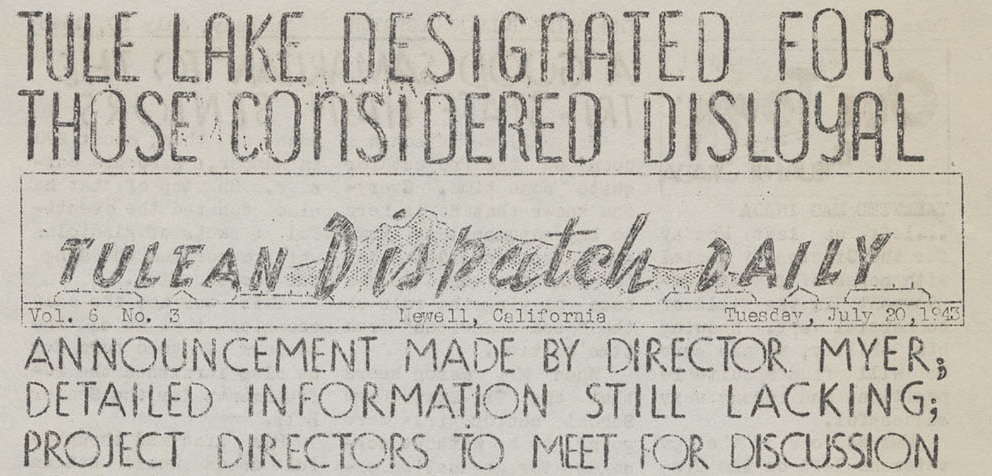 TULE LAKE DESIGNATED FOR
THOSE CONSIDERED DISLOYAL
TULEAN Dispatch DAILY
Vol. 6 No. 3 Newell, California Tuesday, July 20, 1943
ANNOUNCEMENT MADE BY DIRECTOR MYER;
DETAILED INFORMATION STILL LACKING;
PROJECT DIRECTORS TO MEET FOR DISCUSSION